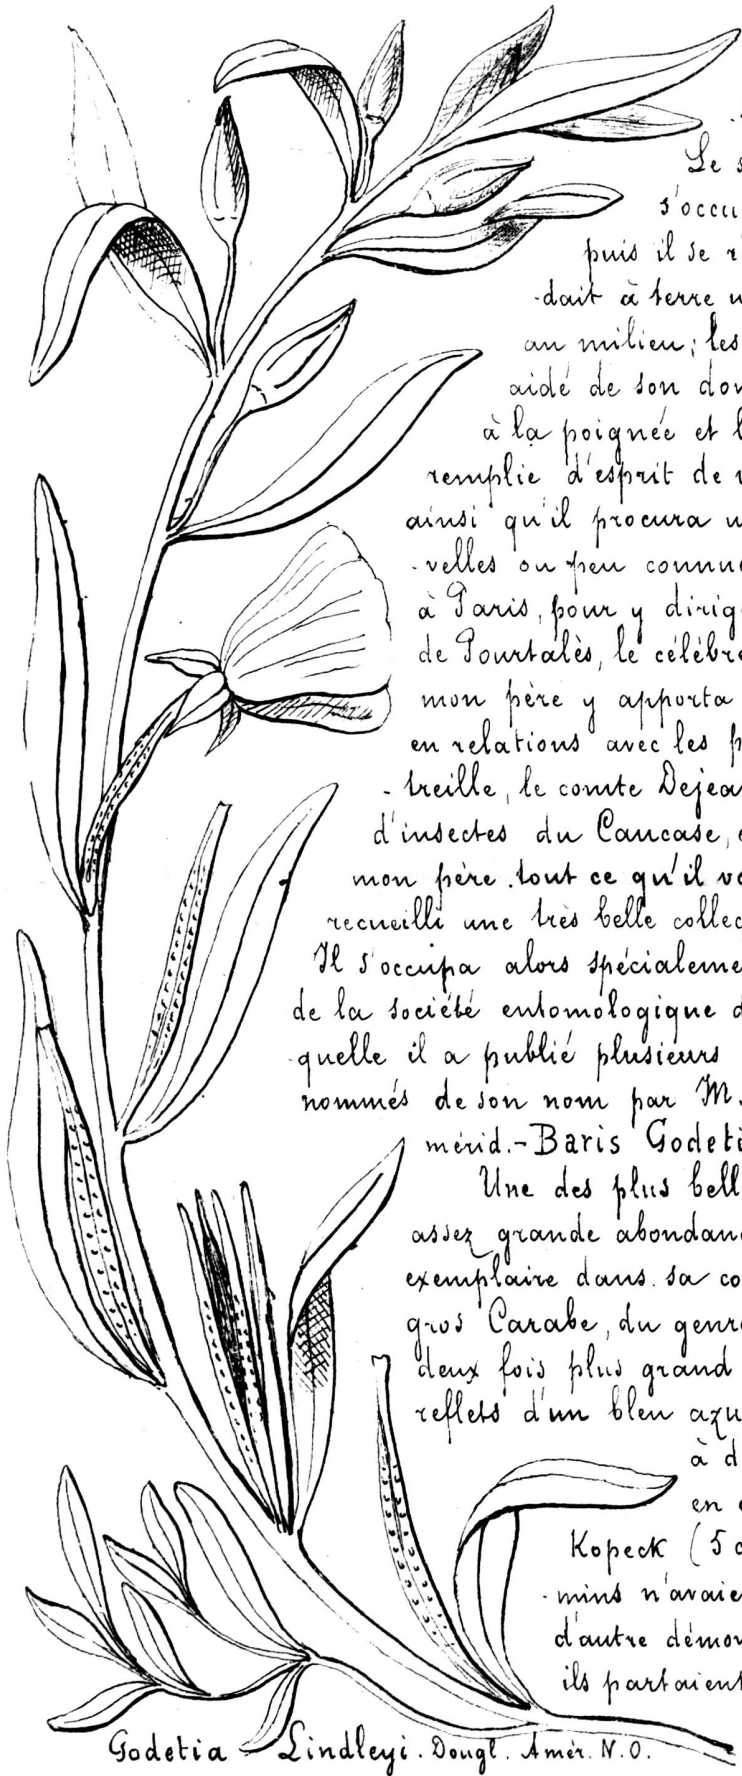 Le s
s'occu
puis il se r
-dait à terre u
au milieu; les
aidé de son dom
à la poignée et l
remplie d'esprit de v
ainsi qu'il procura u
-velles ou peu connue
à Paris, pour y dirig
de Pourtalès, le célèbre
mon père y apporta
en relations avec les p
-treille, le comte Dejea
d'insectes du Caucase, e
mon père tout ce qu'il vo
recueilli une très belle collec
Il s'occupa alors spécialeme
de la société entomologique d
quelle il a publié plusieurs
nommés de son nom par M.
mérid.- Baris Godeti
Une des plus bell
assez grande abondanc
exemplaire dans sa co
gros Carabe, du genre
deux fois plus grand
reflets d'un bleu azu
à d
en
Kopeck (5 c
-mins n'avaie
d'autre démon
ils partaient
Godetia Lindleyi. Dougl. Amér. N.O.